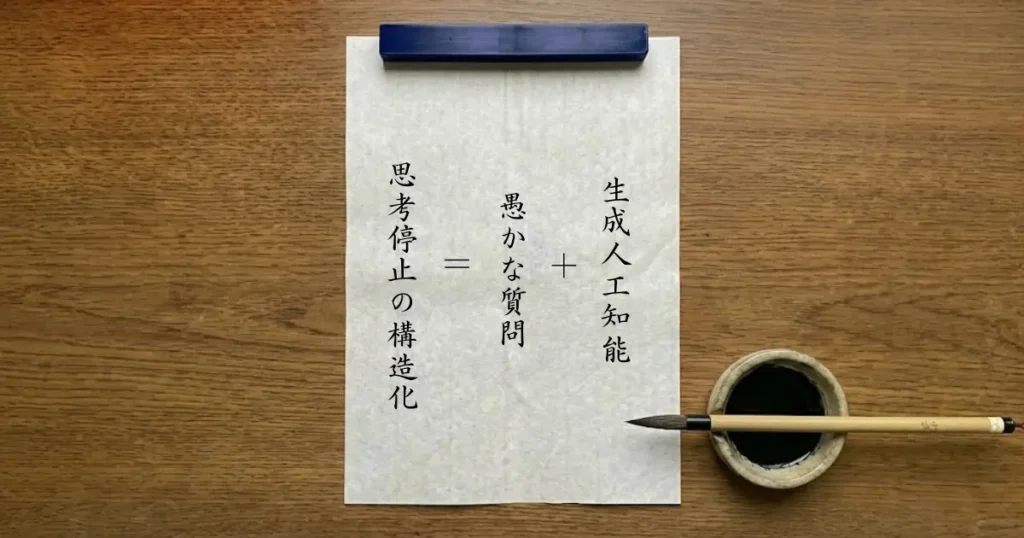 生成人工知能
+
愚かな質問
=
思考停止の構造化